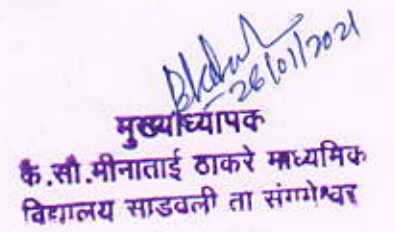 26/01/2021
मुख्याध्यापक
कै.सौ.मीनाताई ठाकरे माध्यमिक
विद्यालय साडवली ता संगमेश्वर